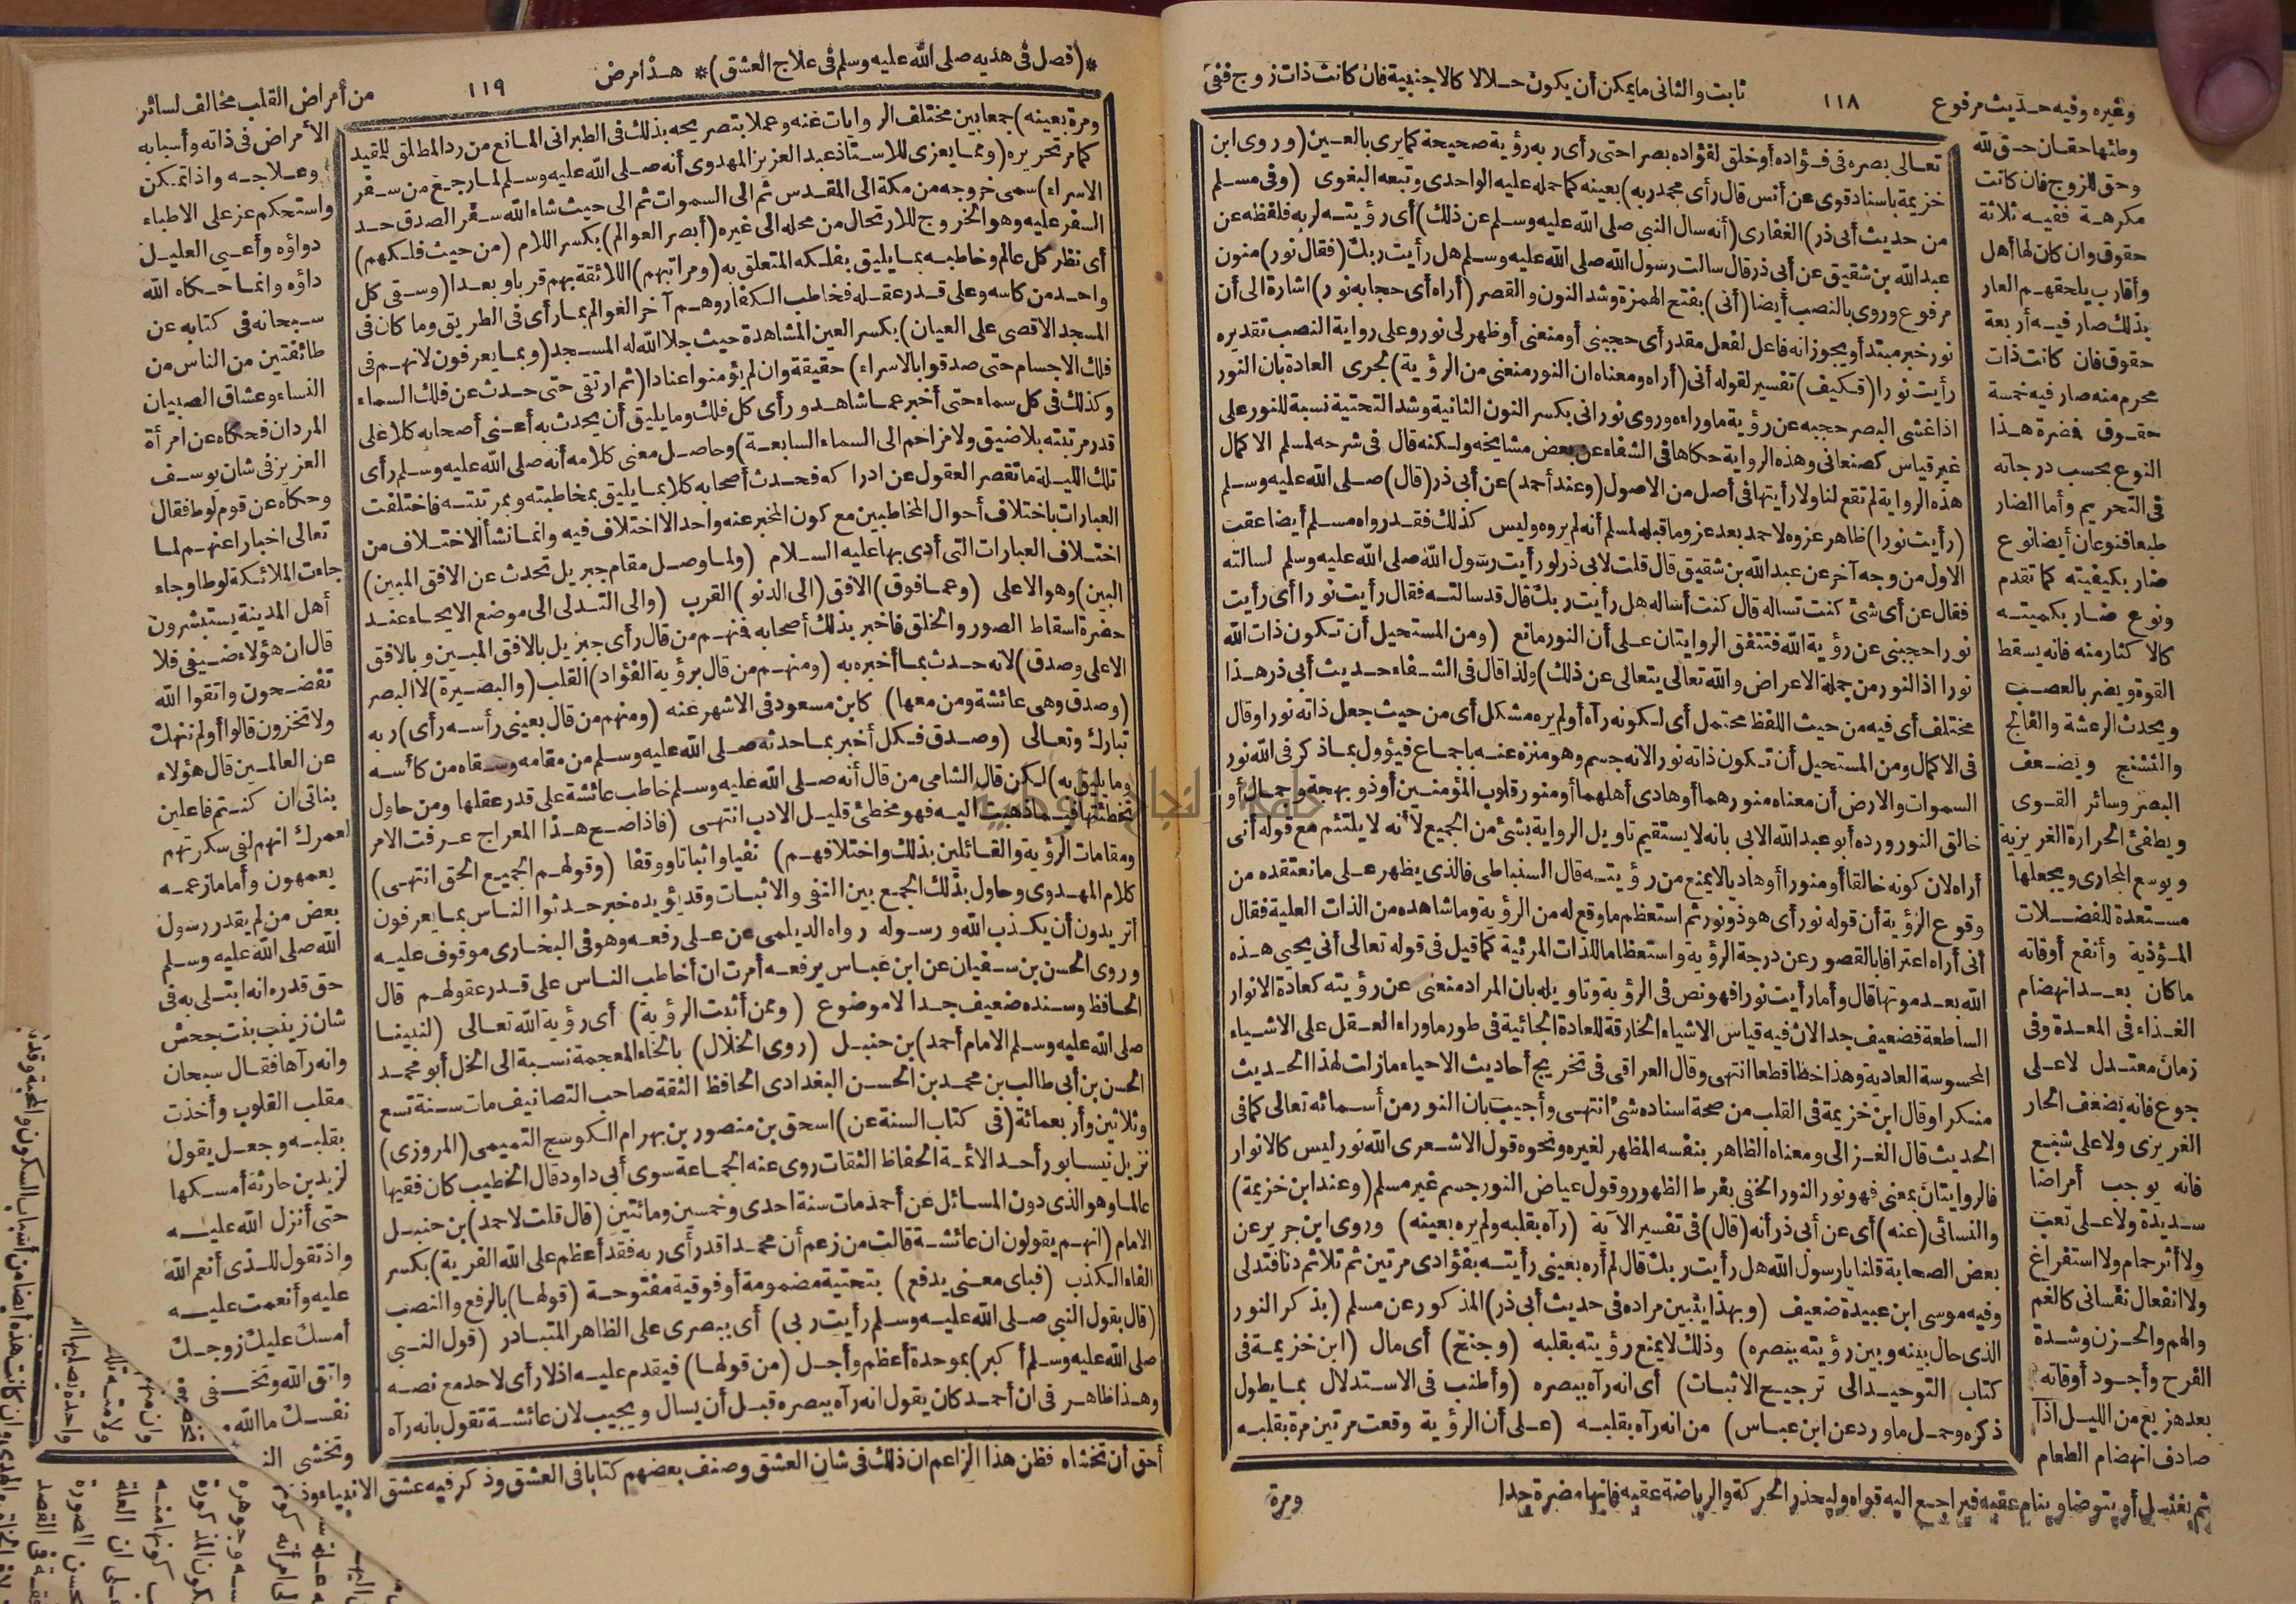 وغيره وفيه حديث مرفوع
١١٨
ثابت والثانى ما يمكن أن يكون حلالا كالاجنبية فان كانت ذات زوج ففى
وطئها حقان حق لله
وحق للزوج فان كانت
مكرهة ففيه ثلاثة
حقوق وان كان لها أهل
وأقارب يلحقهم العار
بذلك صار فيه أربعة
حقوق فان كانت ذات
محرم منه صار فيه خمسة
حقوق فضرة هذا
النوع بحسب درجاته
فى التحريم وأما الضار
طبعا فنوعان أيضا نوع
ضار بكيفيته كما تقدم
ونوع ضار بكميته
كالاكثار منه فانه يسقط
القوة ويضر بالعصب
ويحدث الرعشة والفالج
والتشنج ويضعف
البصر وسائر القوى
ويطفئ الحرارة الغريزية
ويوسع المجارى ويجعلها
مستعدة للفضلات
المؤذية وأنفع أوقاته
ما كان بعد انهضام
الغذاء فى المعدة وفى
زمان معتدل لا على
جوع فانه يضعف الحار
الغريزى ولا على شبع
فانه يوجب أمراضا
سديدة ولا على تعب
ولا أثر حمام ولا استفراغ
ولا انفعال نفسانى كالغم
والهم والحزن وشدة
الفرح وأجود أوقاته
بعد هزيع من الليل اذا
صادف انهضام الطعام
تعالى بصره فى فؤاده أو خلق لفؤاده بصرا حتى رأى ربه رؤية صحيحة كما يرى بالعين (وروى ابن
خزيمة باسناد قوى عن أنس قال رأى محمد ربه) بعينه كما حمله عليه الواحدى وتبعه البغوى (وفى مسلم
من حديث أبى ذر) الغفارى (أنه سال النبى صلى الله عليه وسلم عن ذلك) أى رؤيته لربه فلفظه عن
عبد الله بن شقيق عن أبى ذر قال سالت رسول الله صلى الله عليه وسلم هل رأيت ربك (فقال نور) منون
مرفوع وروى بالنصب أيضا (أنى) بفتح الهمزة وشد النون والقصر (أراه أى حجابه نور) اشارة الى أن
نور خبر مبتدا ويجوز انه فاعل لفعل مقدر أى حجبنى أو منعنى أو ظهر لى نور وعلى رواية النصب تقديره
رأيت نورا (فكيف) تفسير لقوله أنى (أراه ومعناه ان النور منعنى من الرؤية) لجرى العادة بان النور
اذا غشى البصر حجبه عن رؤية ما وراءه وروى نورانى بكسر النون الثانية وشد التحتية نسبة للنور على
غير قياس كصنعانى وهذه الرواية حكاها فى الشفاء عن بعض مشايخه ولكنه قال فى شرحه لمسلم الاكمال
هذه الرواية لم تقع لنا ولا رأيتها فى أصل من الاصول (وعند أحمد) عن أبى ذر (قال) صلى الله عليه وسلم
(رأيت نورا) ظاهر عزوه لاحمد بعد عزو ما قبله لمسلم أنه لم يروه وليس كذلك فقد رواه مسلم أيضا عقب
الاول من وجه آخر عن عبد الله بن شقيق قال قلت لابى ذر لو رأيت رسول الله صلى الله عليه وسلم لسالته
فقال عن أى شئ كنت تساله قال كنت أساله هل رأيت ربك قال قد سالته فقال رأيت نورا أى رأيت
نورا حجبنى عن رؤية الله فتتفق الروايتان على أن النور مانع (ومن المستحيل أن تكون ذات الله
نورا اذ النور من جملة الاعراض والله تعالى يتعالى عن ذلك) ولذا قال فى الشفاء حديث أبى ذر هذا
مختلف أى فيه من حيث اللفظ محتمل أى لكونه رآه أو لم يره مشكل أى من حيث جعل ذاته نورا وقال
فى الاكمال ومن المستحيل أن تكون ذاته نور الانه جسم وهو منزه عنه باجماع فيؤول بما ذكر فى الله نور
السموات والارض أن معناه منورهما أو هادى أهلهما أو منور قلوب المؤمنين أو ذو بهجة وجمال أو
خالق النور ورده أبو عبد الله الابى بانه لا يستقيم تاويل الرواية بشئ من الجميع لأنه لا يلتئم مع قوله أنى
أراه لان كونه خالقا أو منورا أو هاديا لا يمنع من رؤيته قال السنباطى فالذى يظهر على ما نعتقده من
وقوع الرؤية أن قوله نور أى هو ذو نور ثم استعظم ما وقع له من الرؤية وما شاهده من الذات العلية فقال
أنى أراه اعترافا بالقصور عن درجة الرؤية واستعظاما للذات المرئية كما قيل فى قوله تعالى أنى يحيى هذه
الله بعد موتها قال وأما رأيت نورا فهو نص فى الرؤية وتاويله بان المراد منعنى عن رؤيته كعادة الانوار
الساطعة فضعيف جدا لان فيه قياس الاشياء الخارقة للعادة الجائية فى طور ما وراء العقل على الاشياء
المحسوسة العادية وهذا خطا قطعا انتهى وقال العراقى فى تخريج أحاديث الاحياء ما زلت لهذا الحديث
منكرا وقال ابن خزيمة فى القلب من صحة اسناده شئ انتهى وأجيب بان النور من أسمائه تعالى كما فى
الحديث قال الغزالى ومعناه الظاهر بنفسه المظهر لغيره ونحوه قول الاشعرى الله نور ليس كالانوار
فالروايتان بمعنى فهو نور النور الخفى بفرط الظهور وقول عياض النور جسم غير مسلم (وعند ابن خزيمة)
والنسائى (عنه) أى عن أبى ذر أنه (قال) فى تفسير الآية (رآه بقلبه ولم يره بعينه) وروى ابن جرير عن
بعض الصحابة قلنا يا رسول الله هل رأيت ربك قال لم أره بعينى رأيته بفؤادى مرتين ثم تلا ثم دنا فتدلى
وفيه موسى ابن عبيدة ضعيف (وبهذا يتبين مراده فى حديث أبى ذر) المذكور عن مسلم (بذكر النور
الذى حال بينه وبين رؤيته ببصره) وذلك لا يمنع رؤيته بقلبه (وجنح) أى مال (ابن خزيمة فى
كتاب التوحيد الى ترجيح الاثبات) أى انه رآه ببصره (وأطنب فى الاستدلال بما يطول
ذكره وحمل ما ورد عن ابن عباس) من انه رآه بقلبه (على أن الرؤية وقعت مرتين مرة بقلبه
ثم يغتسل أو يتوضا وينام عقبه فيراجع اليه قواه وليحذر الحركة والرياضة عقبه فانها مضرة جدا
ومرة
*(فصل فى هديه صلى الله عليه وسلم فى علاج العشق)* هذا مرض
١١٩
من أمراض القلب مخالف لسائر
ومرة بعينه) جمعا بين مختلف الروايات عنه وعملا بتصريحه بذلك فى الطبرانى المانع من رد المطلق للمقيد
كما مر تحريره (ومما يعزى للاستاذ عبد العزيز المهدوى أنه صلى الله عليه وسلم لما رجع من سفر
الاسراء) سمى خروجه من مكة الى المقدس ثم الى السموات ثم الى حيث شاء الله سفر الصدق حد
السفر عليه وهو الخروج للارتحال من محله الى غيره (أبصر العوالم) بكسر اللام (من حيث فلكهم)
أى نظار كل عالم وخاطبه بما يليق بفلكه المتعلق به (ومراتبهم) اللائقة بهم قربا وبعدا (وسقى كل
واحد من كاسه وعلى قدر عقله فخاطب الكفار وهم آخر العوالم بما رأى فى الطريق وما كان فى
المسجد الاقصى على العيان) بكسر العين المشاهدة حيث جلا الله له المسجد (وبما يعرفون لانهم فى
فلك الاجسام حتى صدقوا بالاسراء) حقيقة وان لم يؤمنوا عنادا (ثم ارتقى حتى حدث عن فلك السماء
وكذلك فى كل سماء حتى أخبر عما شاهد ورأى كل فلك وما يليق أن يحدث به أعنى أصحابه كلا على
قدر مرتبته بلا ضيق ولا مزاحم الى السماء السابعة) وحاصل معنى كلامه أنه صلى الله عليه وسلم رأى
تلك الليلة ما تقصر العقول عن ادراكه فحدث أصحابه كلا بما يليق بمخاطبته وبمرتبته فاختلفت
العبارات باختلاف أحوال المخاطبين مع كون المخبر عنه واحد الا اختلاف فيه وانما نشأ الاختلاف من
اختلاف العبارات التى أدى بها عليه السلام (ولما وصل مقام جبريل تحدث عن الافق المبين)
البين) وهو الاعلى (وعما فوق) الافق (الى الدنو) القرب (والى التدلى الى موضع الايحاء عند
حضرة اسقاط الصور والخلق فاخبر بذلك أصحابه فمنهم من قال رأى جبريل بالافق المبين وبالافق
الاعلى وصدق) لانه حدث بما أخبره به (ومنهم من قال برؤية الفؤاد) القلب (والبصيرة) لا البصر
(وصدق وهى عائشة ومن معها) كابن مسعود فى الاشهر عنه (ومنهم من قال بعينى رأسه رأى) ربه
تبارك وتعالى (وصدق فكل أخبر بما حدثه صلى الله عليه وسلم من مقامه وسقاه من كأسه
وما يليق به) لكن قال الشامى من قال أنه صلى الله عليه وسلم خاطب عائشة على قدر عقلها ومن حاول
تخطئتها فيما ذهبت اليه فهو مخطئ قليل الادب انتهى (فاذا صح هذا المعراج عرفت الامر
ومقامات الرؤية والقائلين بذلك واختلافهم) نفيا واثباتا ووقفا (وقولهم الجميع الحق انتهى)
كلام المهدوى وحاول بذلك الجمع بين النفى والاثبات وقد يؤيده خبر حدثوا الناس بما يعرفون
أتريدون أن يكذب الله ورسوله رواه الديلمى عن على رفعه وهو فى البخارى موقوف عليه
وروى الحسن بن سفيان عن ابن عباس يرفعه أمرت ان أخاطب الناس على قدر عقولهم قال
الحافظ وسنده ضعيف جدا لا موضوع (وممن أثبت الرؤية) أى رؤية الله تعالى (لنبينا
صلى الله عليه وسلم الامام أحمد) بن حنبل (روى الخلال) بالخاء المعجمة نسبة الى الخل أبو محمد
الحسن بن أبى طالب بن محمد بن الحسن البغدادى الحافظ الثقة صاحب التصانيف مات سنة تسع
وثلاثين وأربعمائة (فى كتاب السنة عن) اسحق بن منصور بن بهرام الكوسج التميمى (المروزى)
نزيل نيسابور أحد الائمة الحفاظ الثقات روى عنه الجماعة سوى أبى داود قال الخطيب كان فقيها
عالما وهو الذى دون المسائل عن أحمد مات سنة احدى وخمسين ومائتين (قال قلت لاحمد) بن حنبل
الامام (انهم يقولون ان عائشة قالت من زعم أن محمدا قد رأى ربه فقد أعظم على الله الفرية) بكسر
الفاء الكذب (فباى معنى يدفع) بتحتية مضمومة أو فوقية مفتوحة (قولها) بالرفع والنصب
(قال بقول النبى صلى الله عليه وسلم رأيت ربى) أى ببصرى على الظاهر المتبادر (قول النبى
صلى الله عليه وسلم أكبر) بموحدة أعظم وأجل (من قولها) فيقدم عليه اذ لا رأى لاحد مع نصه
وهذا ظاهر فى ان أحمد كان يقول انه رآه ببصره قبل أن يسال ويجيب لان عائشة تقول بانه رآه
الامراض فى ذاته وأسبابه
وعلاجه واذا تمكن
واستحكم عز على الاطباء
دواؤه وأعيى العليل
داؤه وانما حكاه الله
سبحانه فى كتابه عن
طائفتين من الناس من
النساء وعشاق الصبيان
المردان فحكاه عن امرأة
العزيز فى شان يوسف
وحكاه عن قوم لوط فقال
تعالى اخبارا عنهم لما
جاءت الملائكة لوطا وجاء
أهل المدينة يستبشرون
قال ان هؤلاء ضيفى فلا
تفضحون واتقوا الله
ولا تخزون قالوا أولم ننهك
عن العالمين قال هؤلاء
بناتى ان كنتم فاعلين
لعمرك انهم لفى سكرتهم
يعمهون وأما ما زعمه
بعض من لم يقدر رسول
الله صلى الله عليه وسلم
حق قدره انه ابتلى به فى
شان زينب بنت جحش
وانه رآها فقال سبحان
مقلب القلوب وأخذت
بقلبه وجعل يقول
لزيد بن حارثة أمسكها
حتى أنزل الله عليه
واذ تقول للذى أنعم الله
عليه وأنعمت عليه
أمسك عليك زوجك
واتق الله وتخفى فى
نفسك ما الله
وتخشى
أحق أن تخشاه فظن هذا الزاعم ان ذلك فى شان العشق وصنف بعضهم كتابا فى العشق وذكر فيه عشق الانبياء